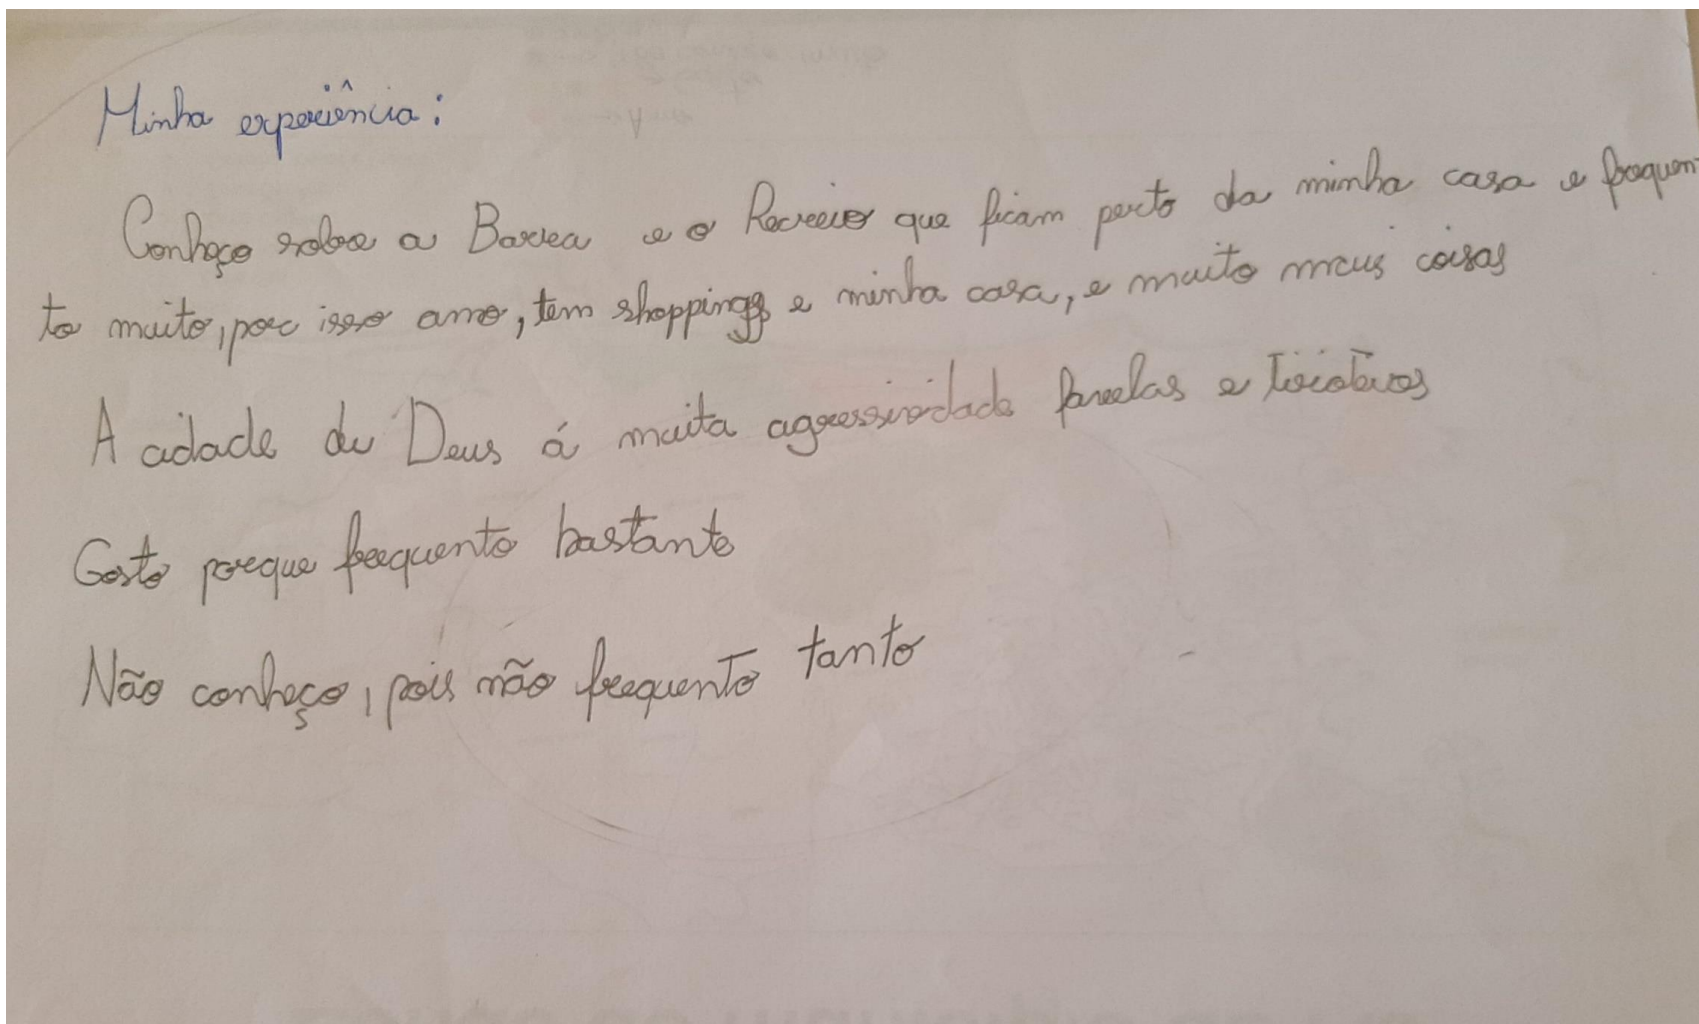 Minha experiência:
Conheço sobre a Barra e o Recreio que ficam perto da minha casa e frequen
to muito, por isso amo, tem shoppings e minha casa, e muito mais coisas
A cidade de Deus á muita agressividade favelas e
Gosto porque frequento bastante
Não conheço, pois não frequento tanto